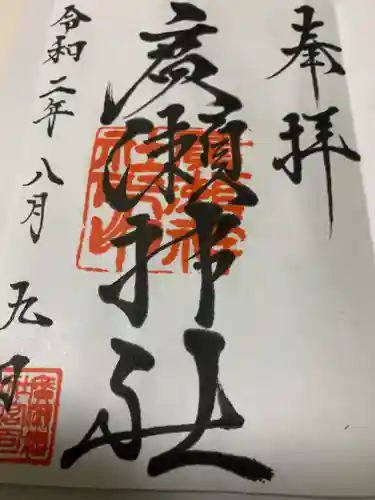 奉拝
廣瀬神社
令和二年八月九日